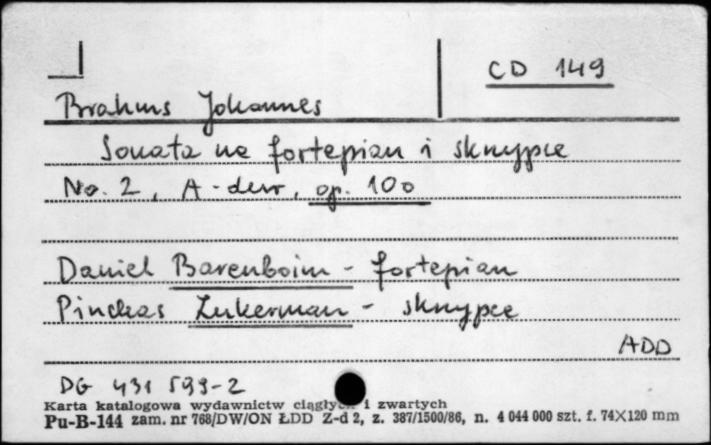 CD 149
Brahms Johannes
Sonata na fortepian i skrzypce
No. 2, A-dur, op. 100
Daniel Barenboim - fortepian
Pinchas Zukerman - skrzypce
ADD
DG 431 599-2
Karta katalogowa wydawnictw ciągłych i zwartych
Pu-B-144 zam. nr 768/DW/ON ŁDD Z-d 2, z. 387/1500/86, n. 4 044 000 szt. f. 74X120 mm